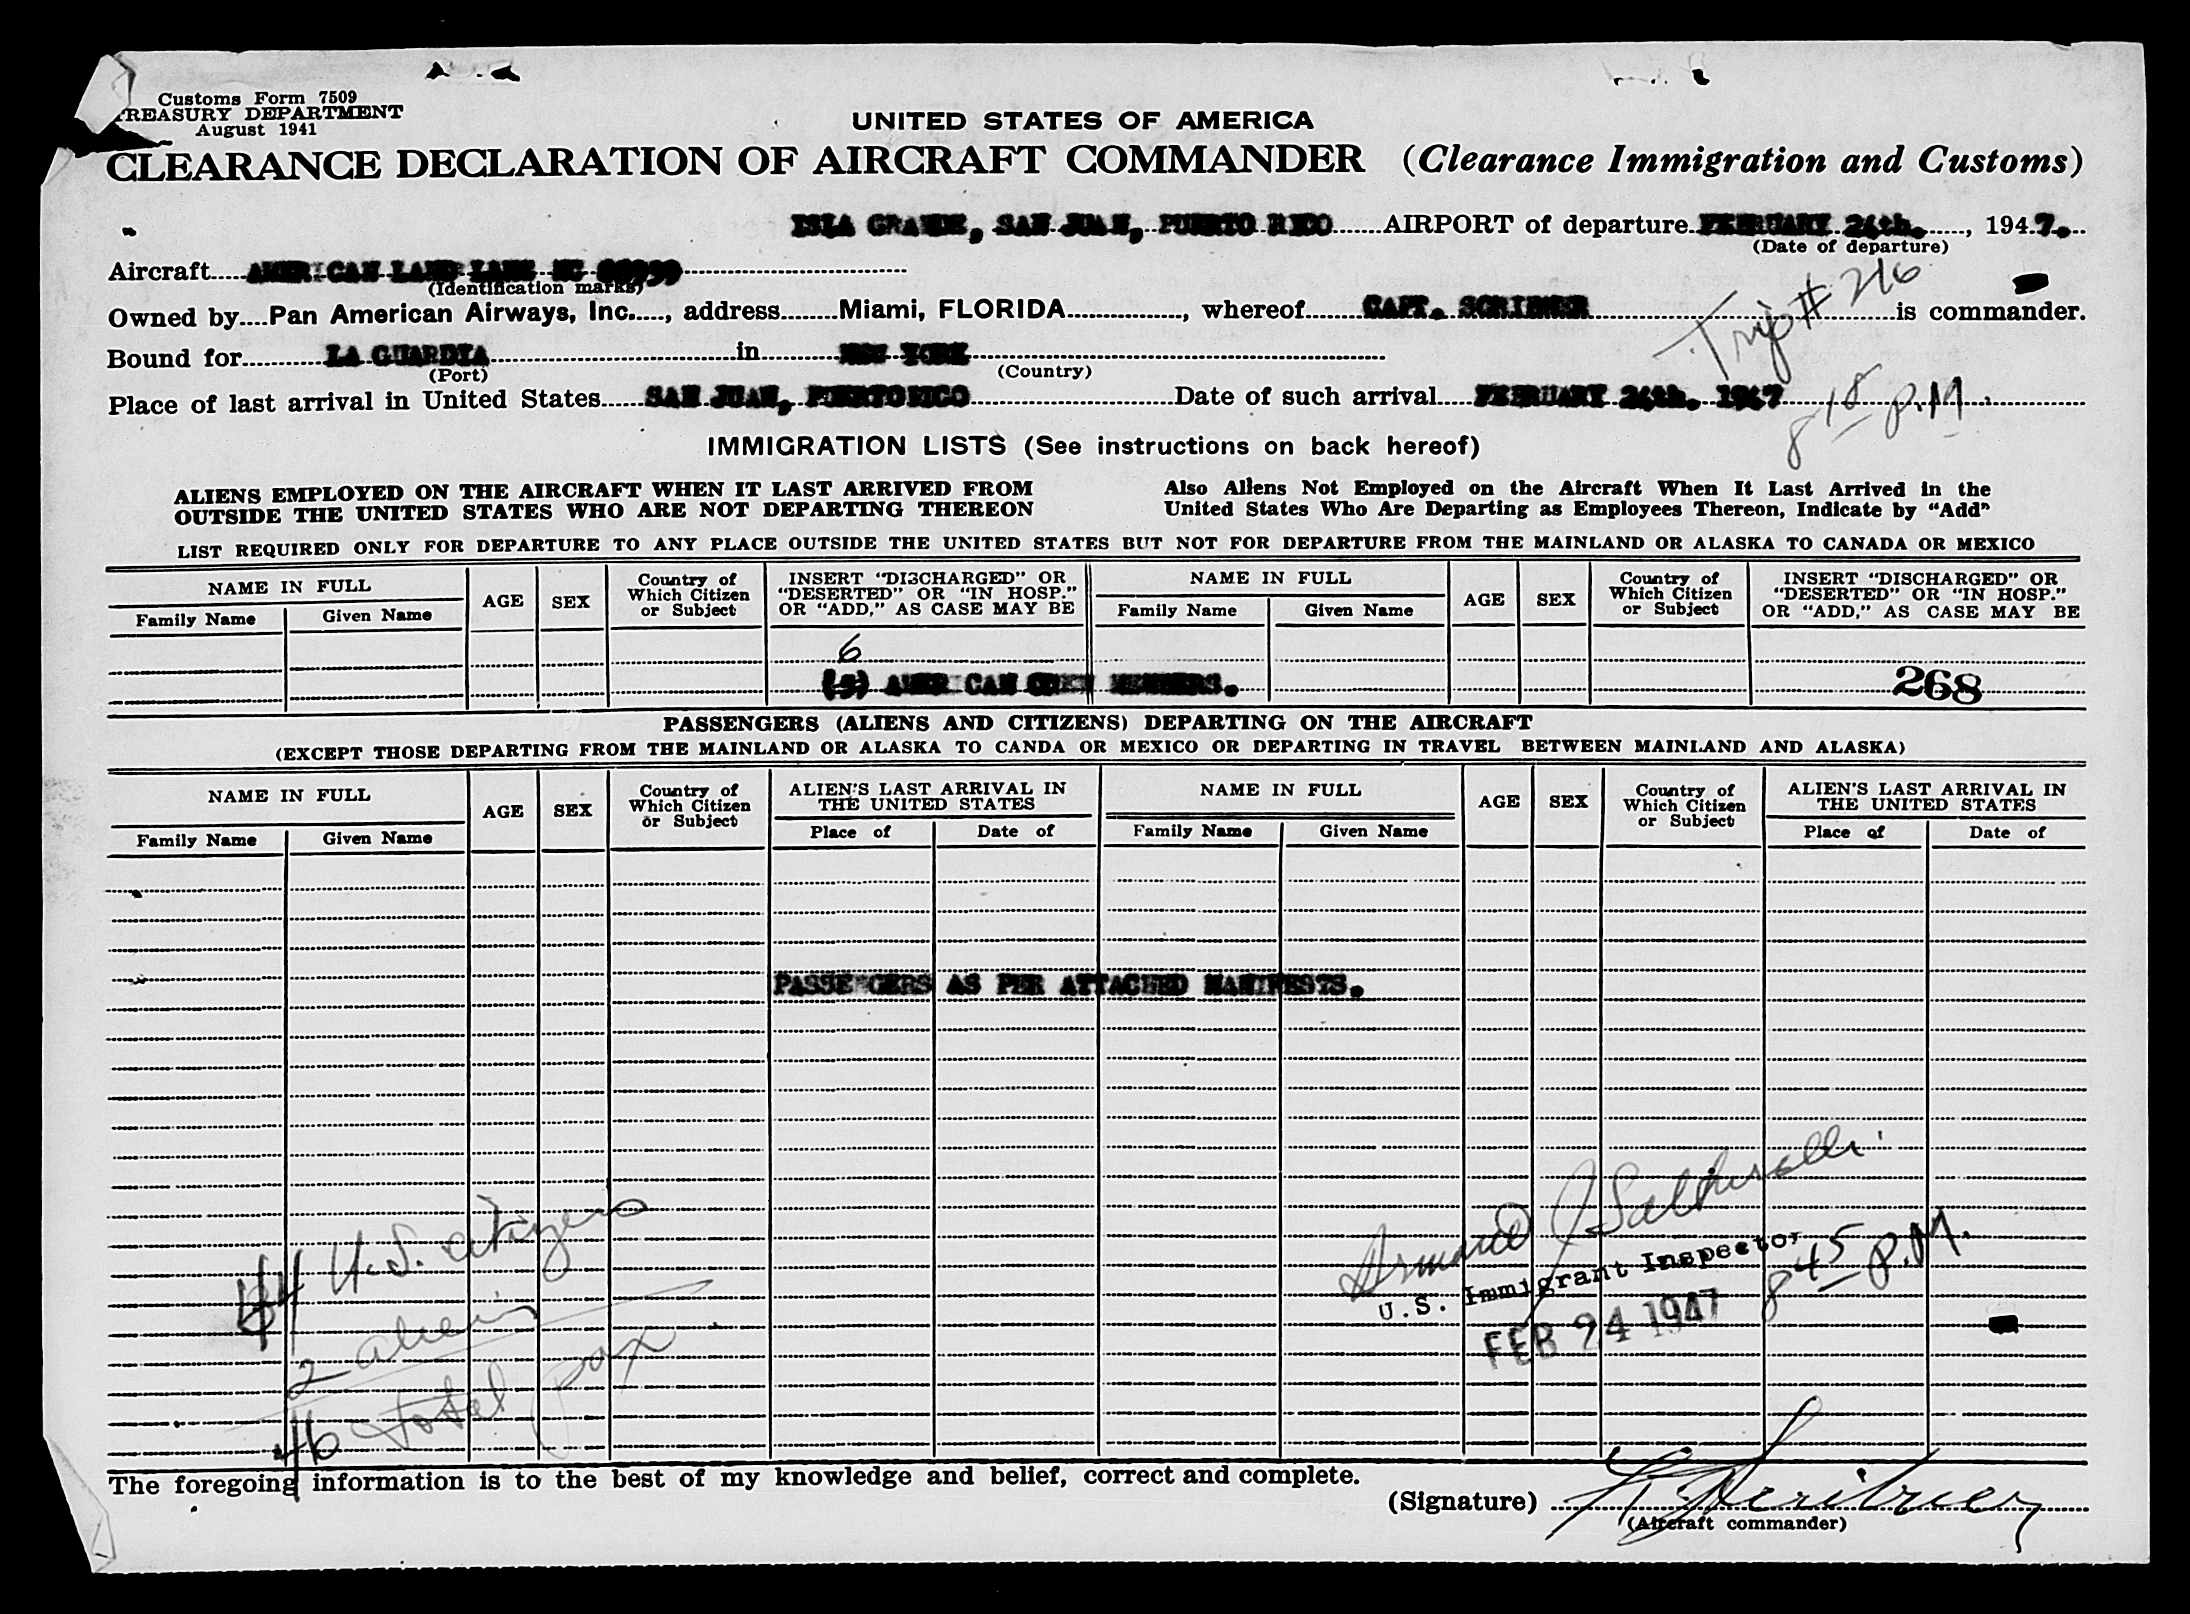 Customs Form 7509
TREASURY DEPARTMENT
August 1941
UNITED STATES OF AMERICA
CLEARANCE DECLARATION OF AIRCRAFT COMMANDER (Clearance Immigration and Customs)
ISLA GRANDE, SAN JUAN, PUERTO RICO AIRPORT of departure FEBRUARY 24th., 1947.
(Date of departure)
Aircraft AMERICAN LAND PLANE NC
(Identification marks)
Trip # 216
Owned by Pan American Airways, Inc., address Miami, FLORIDA, whereof CAPT. SCRIBNER is commander.
Bound for LA GUARDIA in NEW YORK
(Port) (Country)
Place of last arrival in United States SAN JUAN, PUERTO RICO Date of such arrival FEBRUARY 24th. 1947
8 15 P.M.
IMMIGRATION LISTS (See instructions on back hereof)
ALIENS EMPLOYED ON THE AIRCRAFT WHEN IT LAST ARRIVED FROM OUTSIDE THE UNITED STATES WHO ARE NOT DEPARTING THEREON
Also Aliens Not Employed on the Aircraft When It Last Arrived in the United States Who Are Departing as Employees Thereon, Indicate by "Add"
LIST REQUIRED ONLY FOR DEPARTURE TO ANY PLACE OUTSIDE THE UNITED STATES BUT NOT FOR DEPARTURE FROM THE MAINLAND OR ALASKA TO CANADA OR MEXICO
NAME IN FULL AGE SEX Country of Which Citizen or Subject INSERT "DISCHARGED" OR "DESERTED" OR "IN HOSP." OR "ADD," AS CASE MAY BE NAME IN FULL AGE SEX Country of Which Citizen or Subject INSERT "DISCHARGED" OR "DESERTED" OR "IN HOSP." OR "ADD," AS CASE MAY BE
Family Name Given Name Family Name Given Name
6
(5) AMERICAN CREW MEMBERS.
268
PASSENGERS (ALIENS AND CITIZENS) DEPARTING ON THE AIRCRAFT
(EXCEPT THOSE DEPARTING FROM THE MAINLAND OR ALASKA TO CANDA OR MEXICO OR DEPARTING IN TRAVEL BETWEEN MAINLAND AND ALASKA)
NAME IN FULL AGE SEX Country of Which Citizen or Subject ALIEN'S LAST ARRIVAL IN THE UNITED STATES NAME IN FULL AGE SEX Country of Which Citizen or Subject ALIEN'S LAST ARRIVAL IN THE UNITED STATES
Family Name Given Name Place of Date of Family Name Given Name Place of Date of
PASSENGERS AS PER ATTACHED MANIFESTS.
44 U.S. citizens
2 aliens
46 total pax
Armand J
U.S. Immigrant Inspector
FEB 24 1947
8 45 P.M.
The foregoing information is to the best of my knowledge and belief, correct and complete.
(Signature) Scribner
(Aircraft commander)